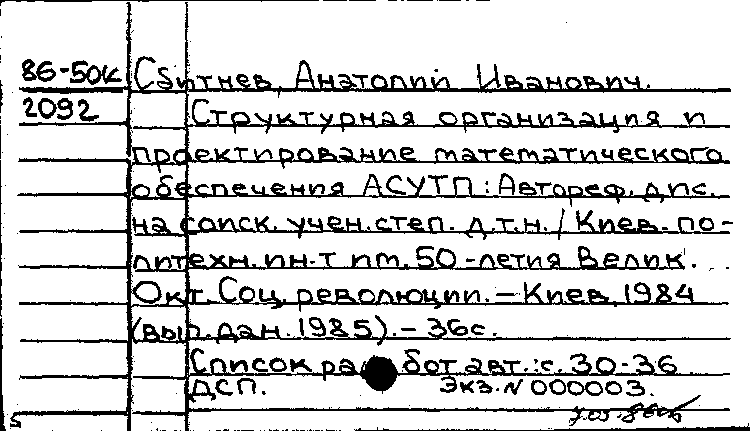 86-50к Саитнев, Анатолий Иванович.
2092 Структурная организация и
проектирование математического
обеспечения АСУТП: Автореф. дис.
на соиск. учен. степ. д.т.н. / Киев. по-
литехн. ин-т им. 50-летия Велик.
Окт. Соц. революции. – Киев, 1984
(вып. дан. 1985). – 36с.
Список работ авт.: с. 30-36
ДСП. Экз. N 000003.
5